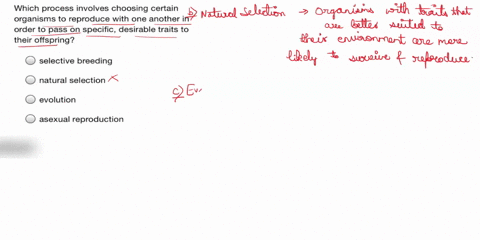 Which process involves choosing certain
organisms to reproduce with one another in
order to pass on specific, desirable traits to
their offspring?
selective breeding
natural selection ×
evolution
asexual reproduction
b) Natural Selection → Organisms with traits that
are better suited to
their environment are more
likely to survive & reproduce.
c) Ev